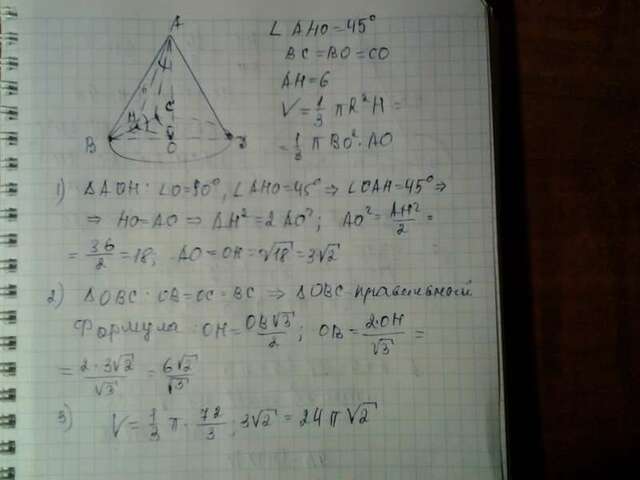 A
∠AHO=45°
BC=BO=CO
AH=6
V=1/3 πR²H=
=1/3 πBO²·AO
6
C
H
B
O
1) ΔAOH: ∠O=90°, ∠AHO=45° ⇒ ∠OAH=45° ⇒
⇒ HO=AO ⇒ AH²=2AO²; AO²=AH²/2=
=36/2=18; AO=OH=√18=3√2
2) ΔOBC: OB=OC=BC ⇒ ΔOBC правильный
Формула: OH=OB√3/2; OB=2·OH/√3=
=2·3√2/√3=6√2/√3
3) V=1/3 π·72/3·3√2=24π√2